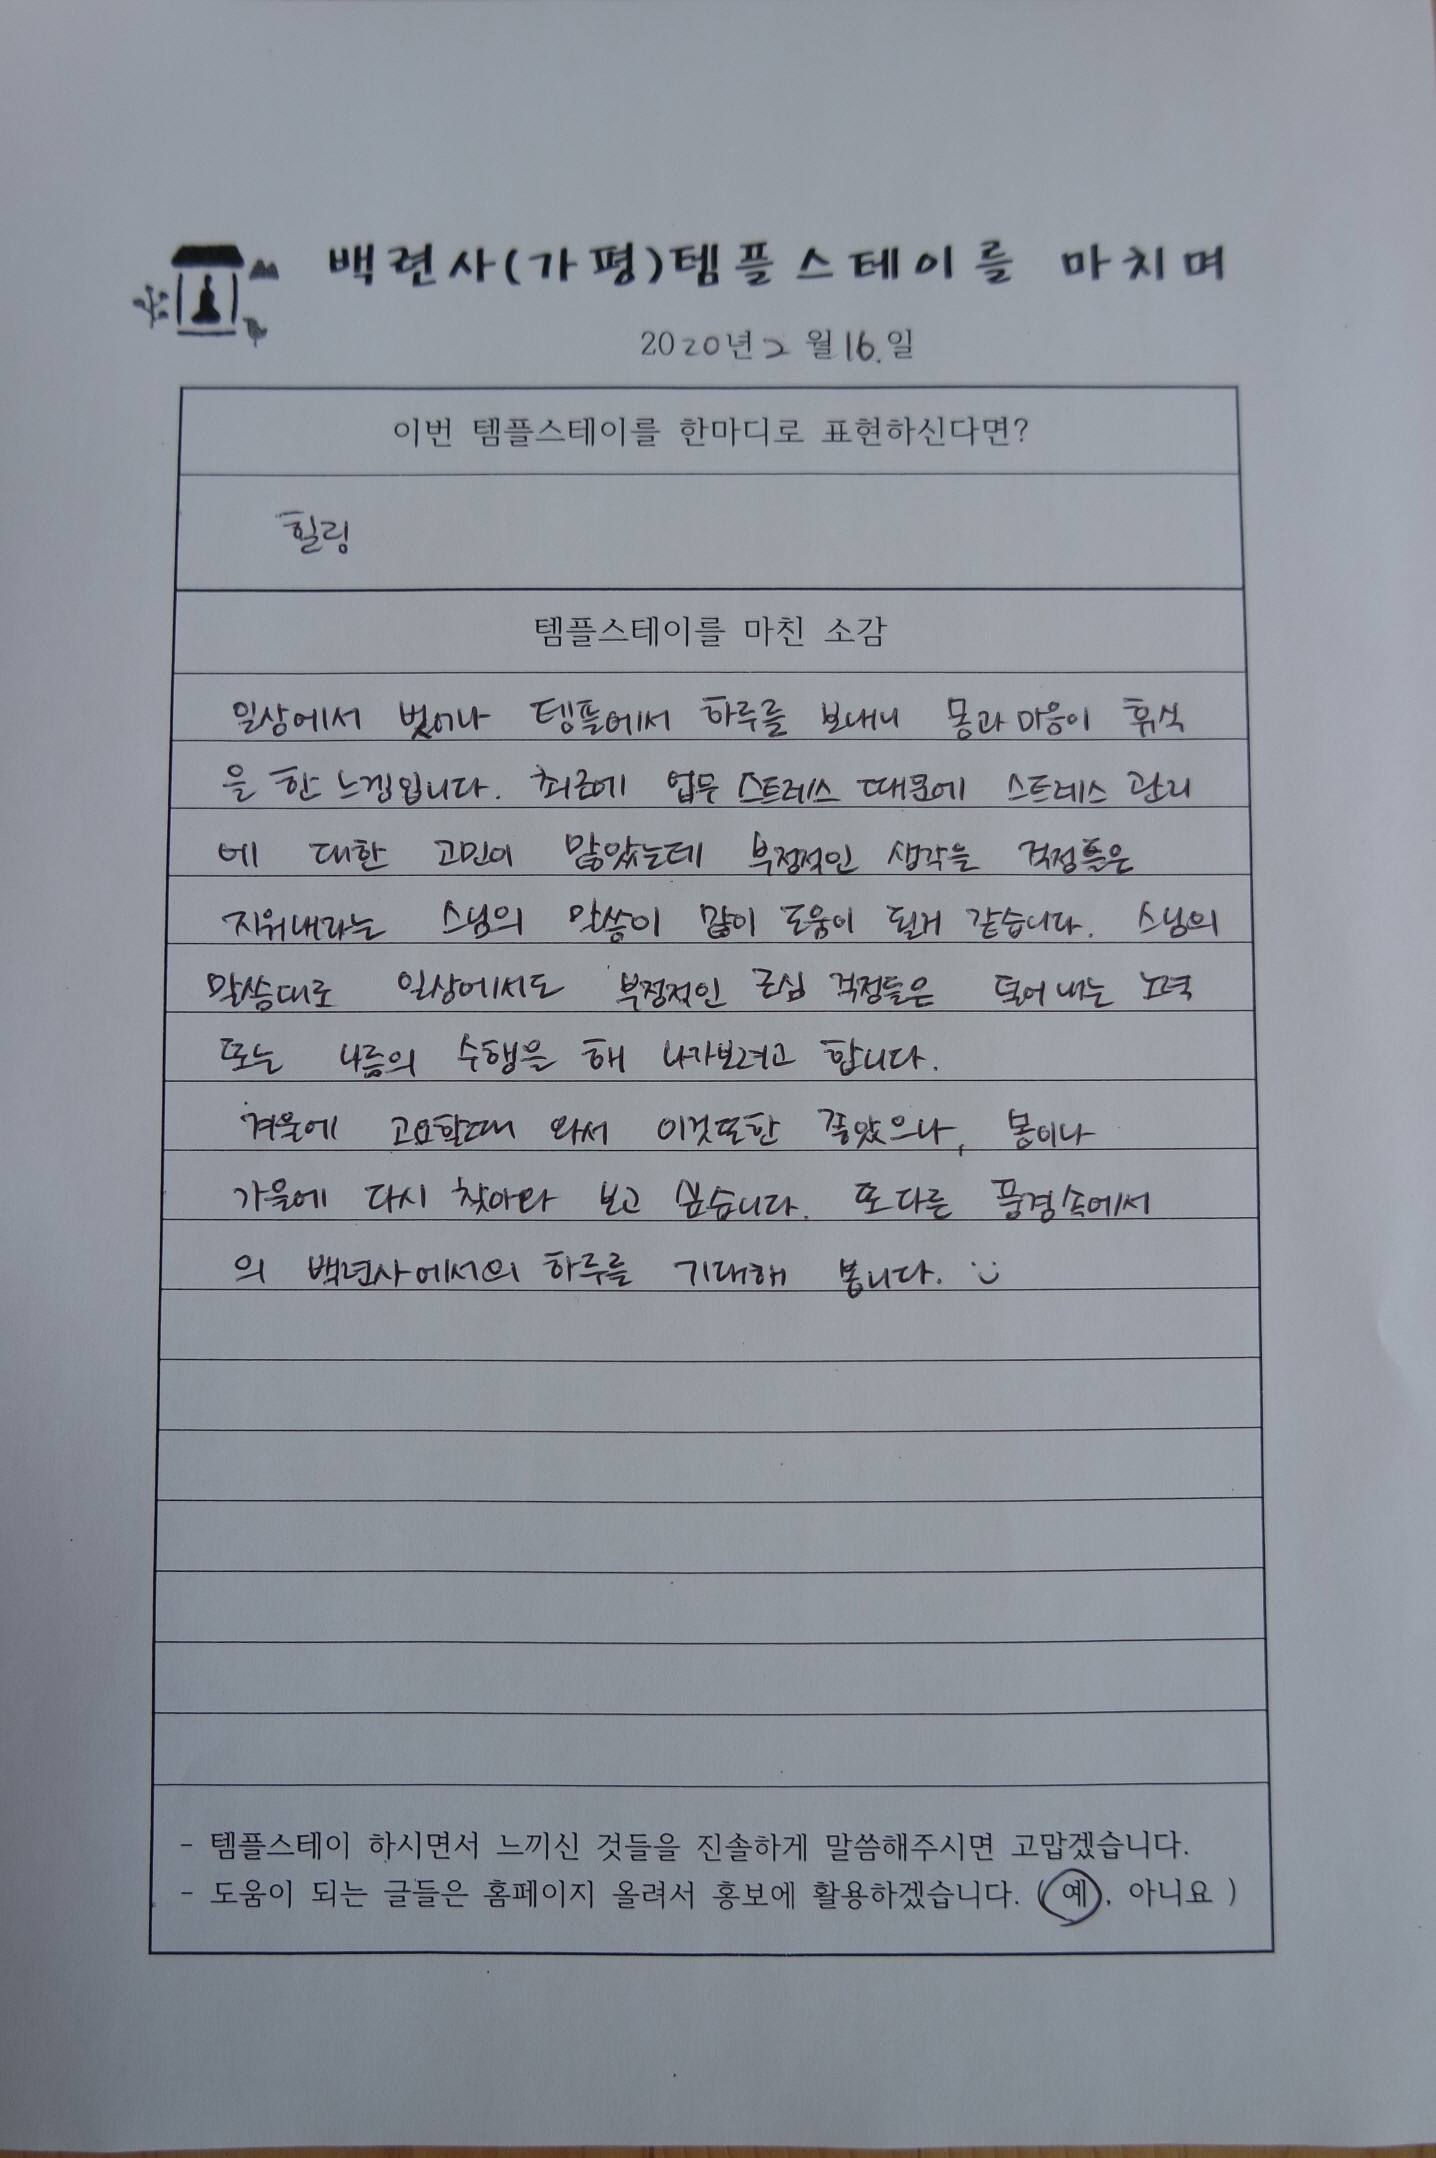 백련사(가평)템플스테이를 마치며
2020년 2월 16.일
이번 템플스테이를 한마디로 표현하신다면?
힐링
템플스테이를 마친 소감
일상에서 벗어나 템플에서 하루를 보내니 몸과 마음이 휴식
을 한 느낌입니다. 최근에 업무 스트레스 때문에 스트레스 관리
에 대한 고민이 많았는데 부정적인 생각을 걱정들은
지워내라는 스님의 말씀이 많이 도움이 될거 같습니다. 스님의
말씀대로 일상에서도 부정적인 근심 걱정들은 덜어 내는 노력
또는 나름의 수행을 해 나가보려고 합니다.
겨울에 고요할때 와서 이것또한 좋았으나, 봄이나
가을에 다시 찾아와 보고 싶습니다. 또 다른 풍경속에서
의 백련사에서의 하루를 기대해 봅니다. :)
- 템플스테이 하시면서 느끼신 것들을 진솔하게 말씀해주시면 고맙겠습니다.
- 도움이 되는 글들은 홈페이지 올려서 홍보에 활용하겠습니다. (예, 아니요 )